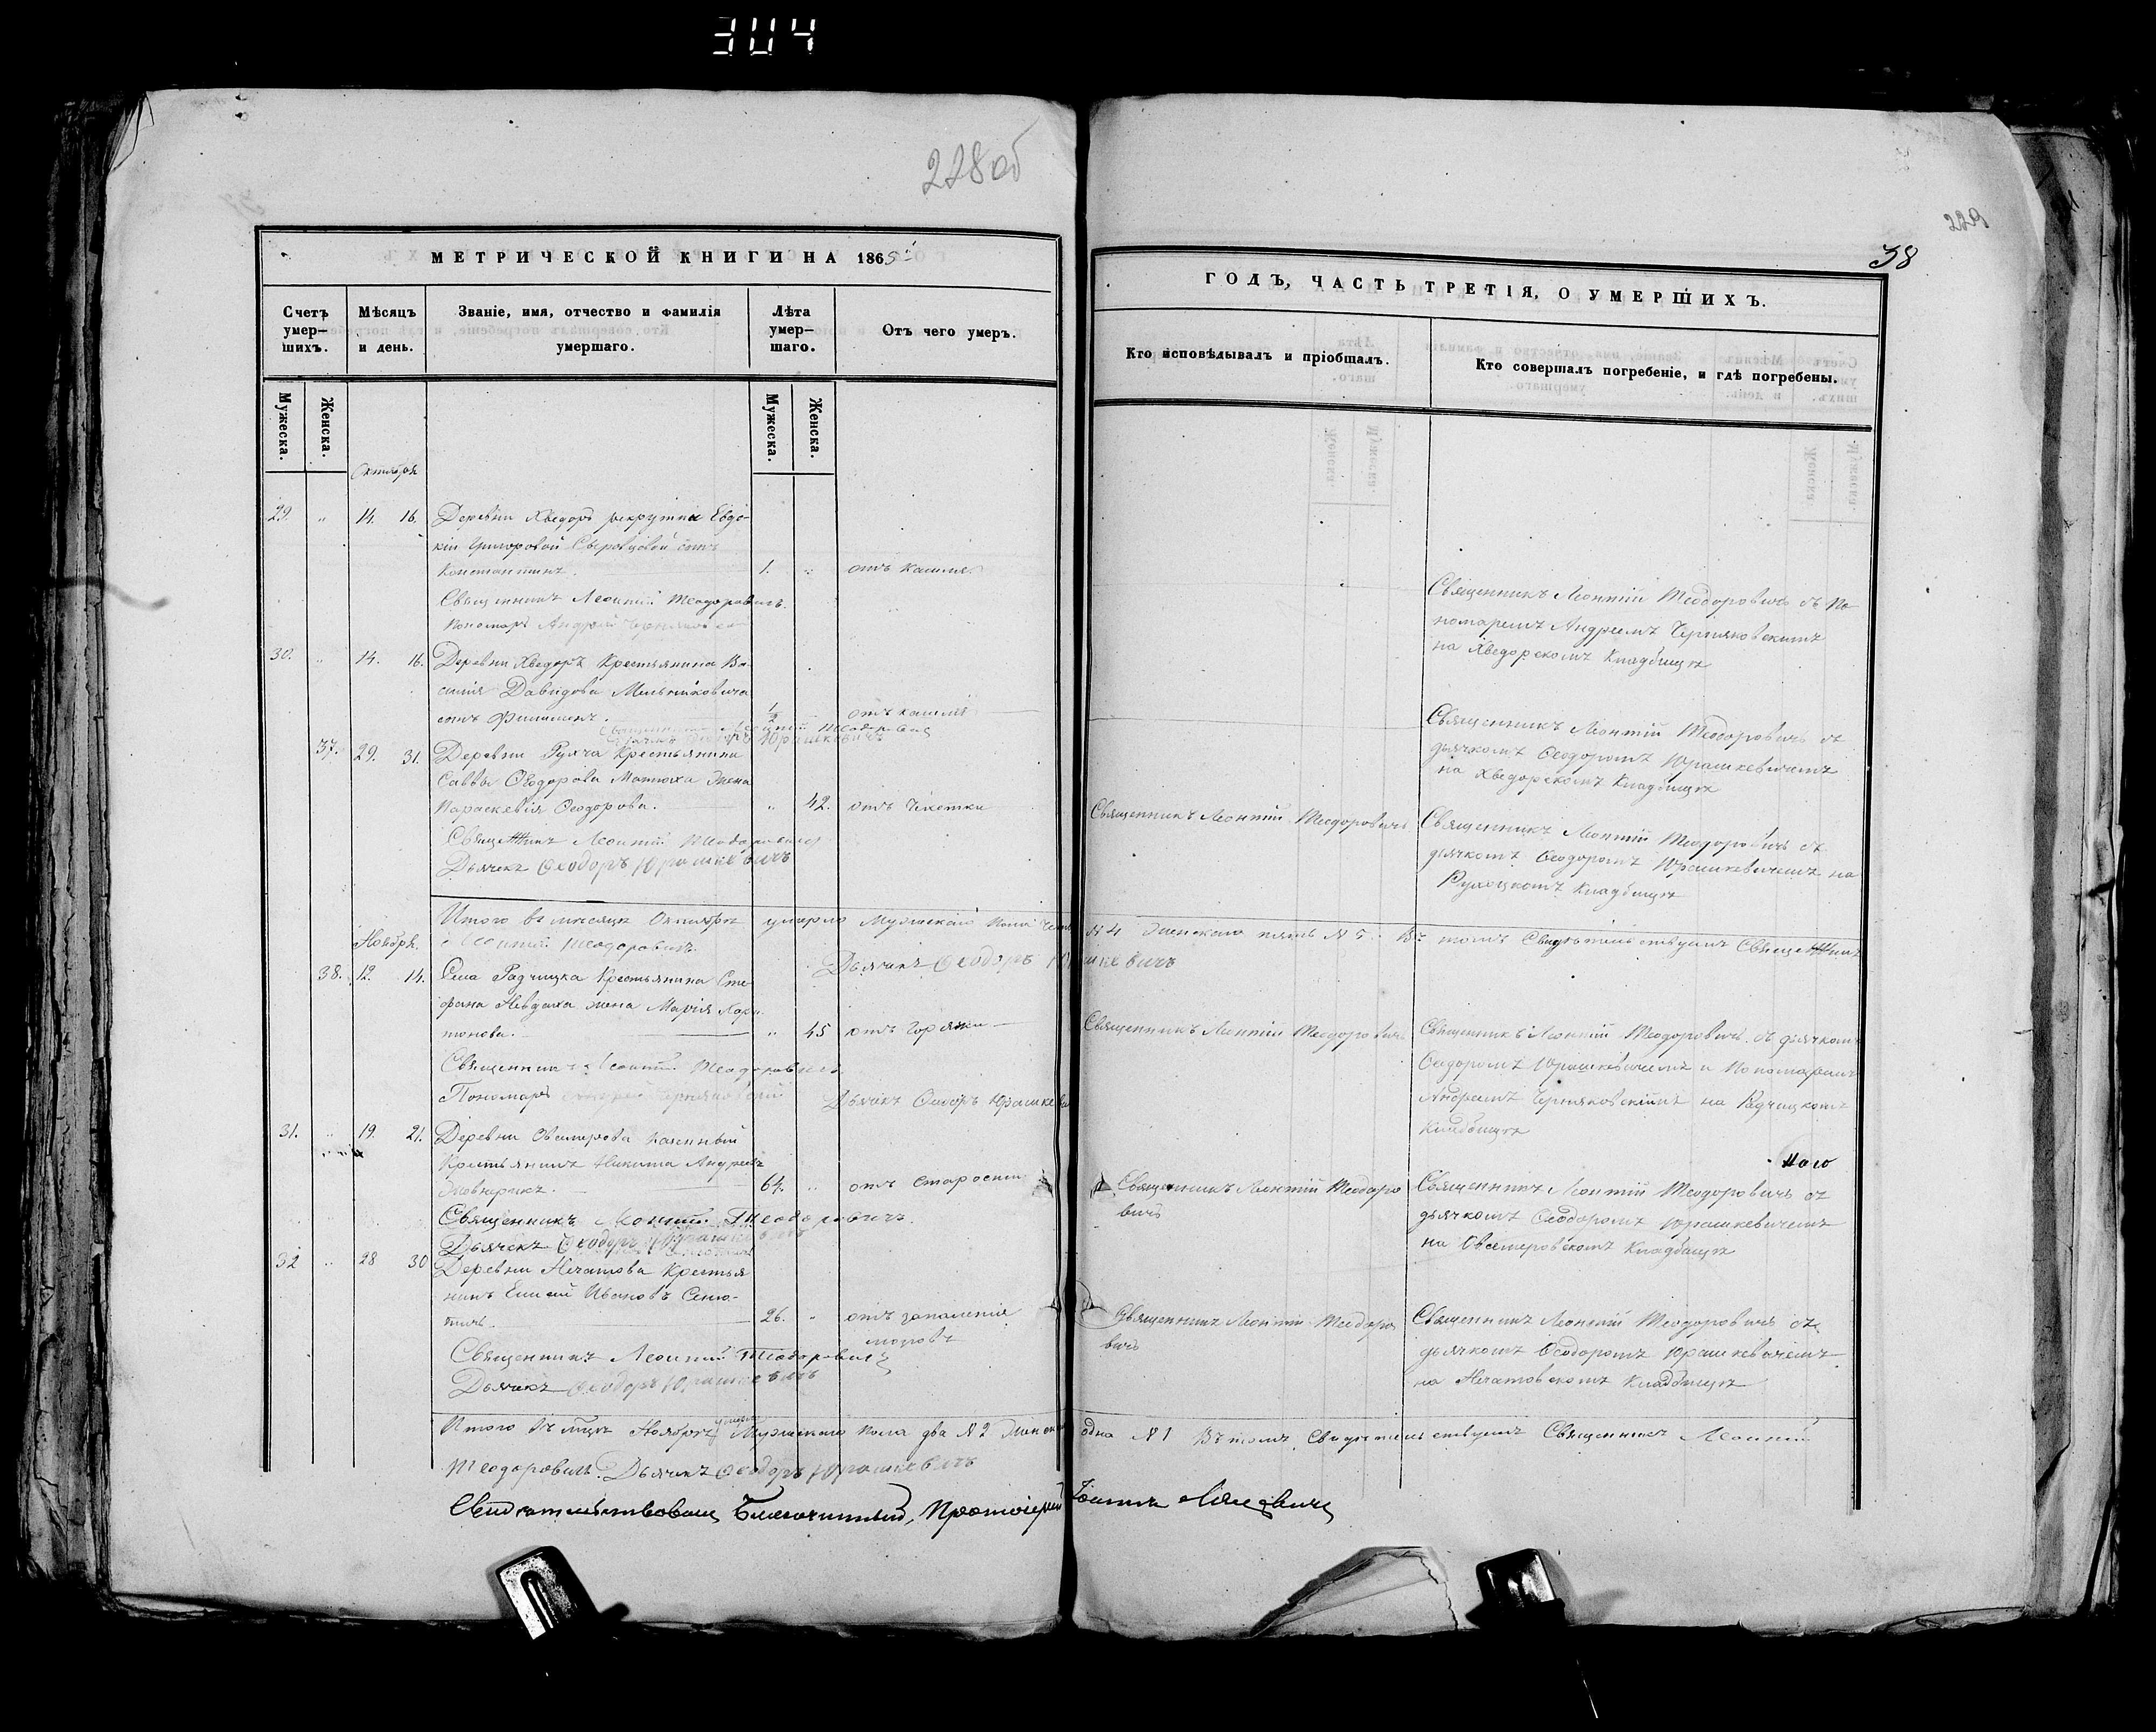 304
228об
229
38
МЕТРИЧЕСКОЙ КНИГИ НА 1865
ГОДЪ, ЧАСТЬ ТРЕТІЯ, О УМЕРШИХЪ.
Счетъ умер-шихъ.
Мѣсяцъ и день.
Званіе, имя, отчество и фамилія умершаго.
Лѣта умер-шаго.
Отъ чего умеръ.
Кто исповѣдывалъ и пріобщалъ.
Кто совершалъ погребеніе, и гдѣ погребены.
Мужеска.
Женска.
Мужеска.
Женска.
Октября
29. " 14. 16. Деревни Хведоръ рекрутки Евдо-
кіи Григоровой Сыровцовой сынъ
Константинъ. 1. " отъ кашля.
Священникъ Леонтій Теодоровичъ.
Пономарь Андрей Черняковскій
Священникъ Леонтій Теодоровичъ съ По-
номаремъ Андреемъ Черняковскимъ
на Хведорскомъ Кладбищѣ
30. " 14. 16. Деревни Хведоръ Крестьянина Ва-
силія Давидова Мельниковича
сынъ Филиппъ. 1/2 отъ кашля
Священникъ Леонтій Теодоровичъ
Дьячекъ Ѳеодоръ Юрашкевичъ
Священникъ Леонтій Теодоровичъ съ
дьячкомъ Ѳеодоромъ Юрашкевичемъ
на Хведорскомъ Кладбищѣ
37. 29. 31. Деревни Рухча Крестьянина
Саввы Ѳеодорова Манюха жена
Параскевія Ѳеодорова. " 42. отъ
Священникъ Леонтій Теодоровичъ
Дьячекъ Ѳеодоръ Юрашкевичъ
Священникъ Леонтій Теодоровичъ
Священникъ Леонтій Теодоровичъ съ
дьячкомъ Ѳеодоромъ Юрашкевичемъ на
Рухоцкомъ Кладбищѣ
Итого въ мѣсяцѣ Октябрѣ умерло Мужескаго пола четыре N 4 Женскаго пять N 5. Въ томъ Свидѣтельствуемъ Священникъ
Леонтій Теодоровичъ.
Дьячекъ Ѳеодоръ Юрашкевичъ
Ноября.
38. 12. 14. Села Радчицка Крестьянина Сте-
фана Невдаха жена Марія Хари-
тонова. " 45 отъ горячки
Священникъ Леонтій Теодоровичъ
Пономарь Андрей Черняковскій Дьячекъ Ѳеодоръ Юрашкевичъ
Священникъ Леонтій Теодоровичъ
Священникъ Леонтій Теодоровичъ съ дьячкомъ
Ѳеодоромъ Юрашкевичемъ и Пономаремъ
Андреемъ Черняковскимъ на Радчицкомъ
Кладбищѣ
31. " 19. 21. Деревни Овсемирова казенный
Крестьянинъ Никита Андреевъ
Жовнерикъ. 64. " отъ старости
Священникъ Леонтій Теодоровичъ.
Дьячекъ Ѳеодоръ Юрашкевичъ
Священникъ Леонтій Теодоро
вичъ
Священникъ Леонтій Теодоровичъ съ
дьячкомъ Ѳеодоромъ Юрашкевичемъ
на Овсемировскомъ Кладбищѣ
32 " 28 30 Деревни Нечатова Крестья
нинъ Елисей Ивановъ Сеню-
тичъ. 26. " отъ запаленія
Священникъ Леонтій Теодоровичъ
Дьячекъ Ѳеодоръ Юрашкевичъ
Священникъ Леонтій Теодоро
вичъ
Священникъ Леонтій Теодоровичъ съ
дьячкомъ Ѳеодоромъ Юрашкевичемъ
на Нечатовскомъ Кладбищѣ
Итого въ мцѣ Ноябрѣ умерло Мужескаго пола два N 2 Женска одна N 1 Въ томъ Свидѣтельствуемъ Священникъ Леонтій
Теодоровичъ. Дьячекъ Ѳеодоръ Юрашкевичъ
Свидѣтельствовалъ Благочинный, Протоіерей Іоаннъ